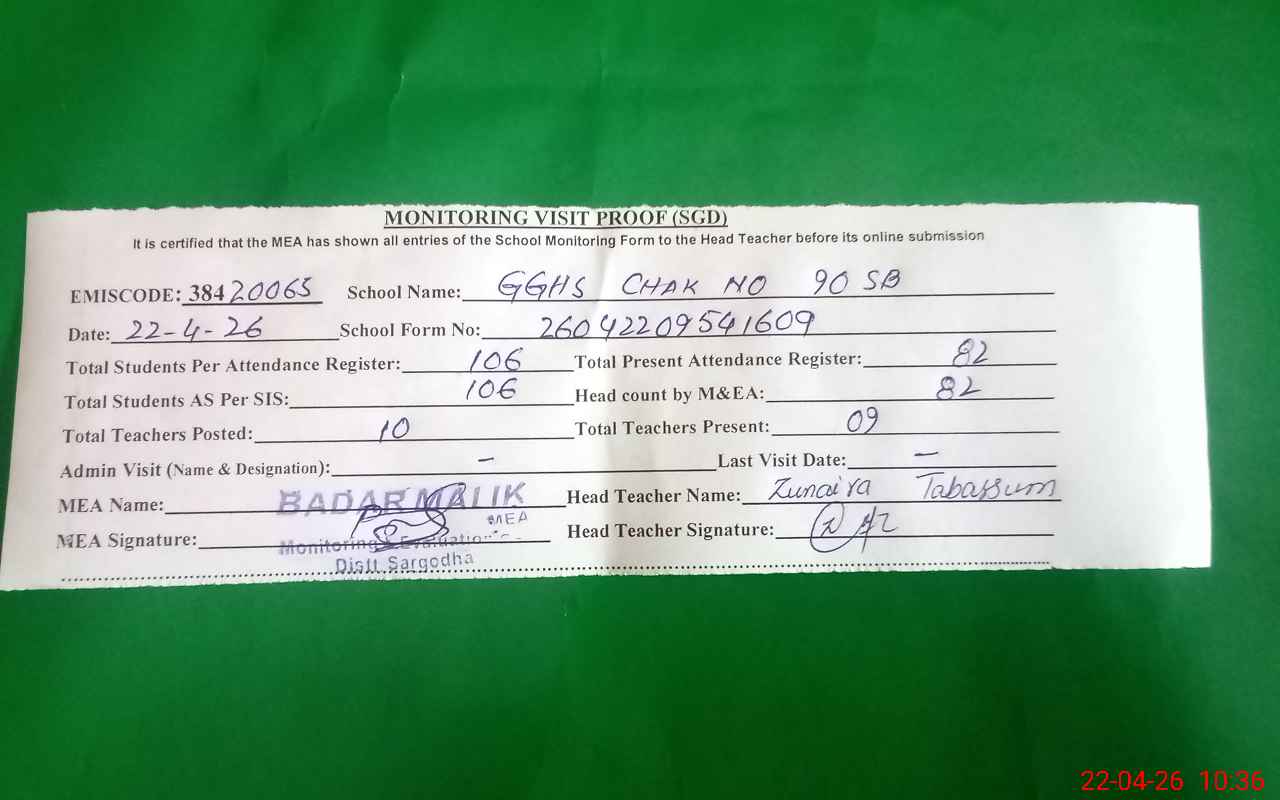 MONITORING VISIT PROOF (SGD)
It is certified that the MEA has shown all entries of the School Monitoring Form to the Head Teacher before its online submission
EMISCODE: 38420065 School Name: GGHS CHAK NO 90 SB
Date: 22-4-26 School Form No: 26042209541609
Total Students Per Attendance Register: 106 Total Present Attendance Register: 82
Total Students AS Per SIS: 106 Head count by M&EA: 82
Total Teachers Posted: 10 Total Teachers Present: 09
Admin Visit (Name & Designation): - Last Visit Date: -
MEA Name: BADAR MALIK Head Teacher Name: Zunaira Tabassum
MEA
MEA Signature: Head Teacher Signature:
Monitoring & Evaluation
Distt Sargodha
22-04-26 10:36